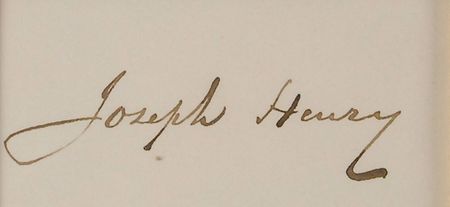 Joseph Henry